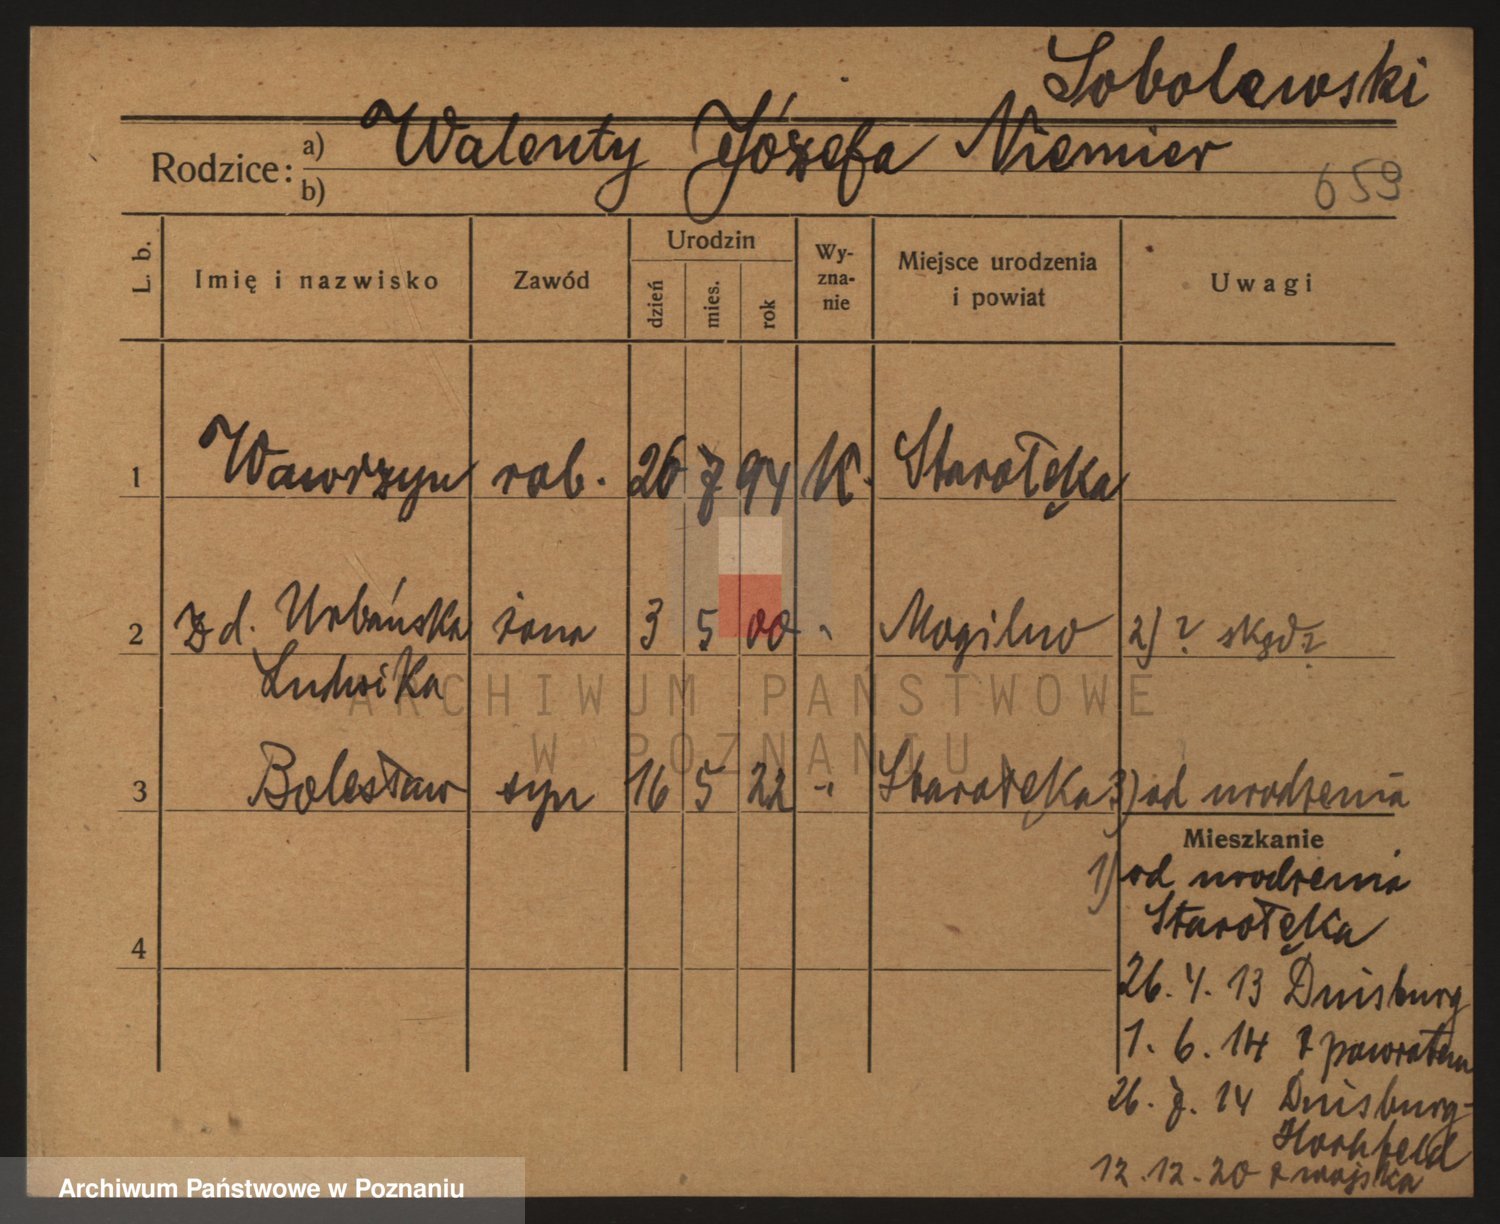 Sobolewski
Rodzice: a) Walenty Józefa Niemier
b)
659
L. b. Imię i nazwisko Zawód Urodzin dzień mies. rok Wy-zna-nie Miejsce urodzenia i powiat Uwagi
1 Wawrzyn rob. 26 7 94 K. Starołęka
2 z d. Urbańska żona 3 5 00 " Mogilno 2) ? skąd ?
Ludwika
3 Bolesław syn 16 5 22 " Starołęka 3) od urodzenia
Mieszkanie
1) od urodzenia
Starołęka
4
26. 4. 13 Duisburg
1. 6. 14 z powrotem
26. 7. 14 Duisburg-
Hochfeld
12.12.20 z wojska
ARCHIWUM PAŃSTWOWE
W POZNANIU
Archiwum Państwowe w Poznaniu